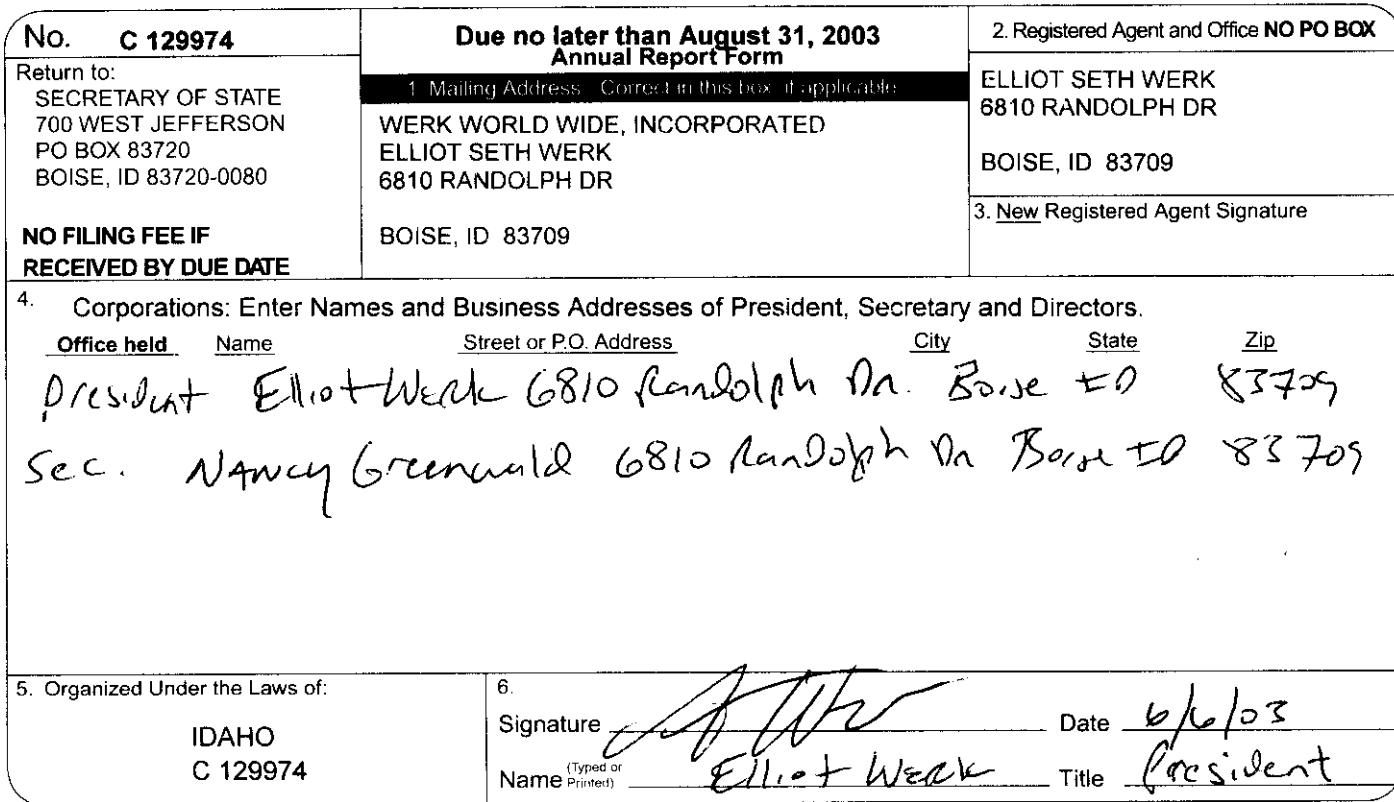 No. C 129974
Return to:
SECRETARY OF STATE
700 WEST JEFFERSON
PO BOX 83720
BOISE, ID 83720-0080
NO FILING FEE IF
RECEIVED BY DUE DATE
Due no later than August 31, 2003
Annual Report Form
1 Mailing Address Correct in this box if applicable
WERK WORLD WIDE, INCORPORATED
ELLIOT SETH WERK
6810 RANDOLPH DR
BOISE, ID 83709
2. Registered Agent and Office NO PO BOX
ELLIOT SETH WERK
6810 RANDOLPH DR
BOISE, ID 83709
3. New Registered Agent Signature
4. Corporations: Enter Names and Business Addresses of President, Secretary and Directors.
Office held Name Street or P.O. Address City State Zip
President Elliot Werk 6810 Randolph Dr. Boise ID 83709
Sec. Nancy Greenwald 6810 Randolph Dr Boise ID 83709
5. Organized Under the Laws of:
IDAHO
C 129974
6.
Signature Date 6/6/03
Name (Typed or Printed) Elliot Werk Title President